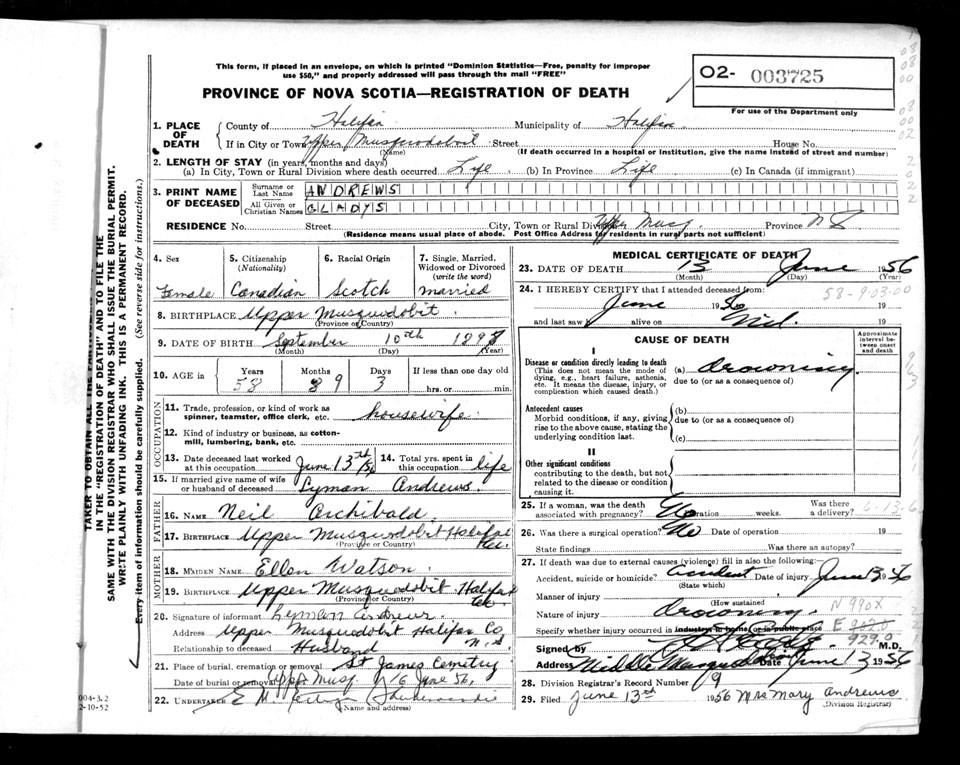 This form, if placed in an envelope, on which is printed "Dominion Statistics—Free, penalty for improper
use $50," and properly addressed will pass through the mail "FREE"
O2- 003725
For use of the Department only
PROVINCE OF NOVA SCOTIA—REGISTRATION OF DEATH
1. PLACE OF DEATH County of Halifax Municipality of Halifax
If in City or Town Upper Musquodoboit Street House No.
(Name) (If death occurred in a hospital or institution, give the name instead of street and number)
2. LENGTH OF STAY (in years, months and days)
(a) In City, Town or Rural Division where death occurred Life (b) In Province Life (c) In Canada (if immigrant)
3. PRINT NAME OF DECEASED Surname or Last Name ANDREWS
All Given or Christian Names GLADYS
RESIDENCE No. Street City, Town or Rural Division Upper Musq. Province N S
(Residence means usual place of abode. Post Office Address for residents in rural parts not sufficient)
4. Sex Female
5. Citizenship (Nationality) Canadian
6. Racial Origin Scotch
7. Single, Married, Widowed or Divorced (write the word) married
8. BIRTHPLACE Upper Musquodobit
(Province or Country)
9. DATE OF BIRTH September 10th 1897
(Month) (Day) (Year)
10. AGE in Years 58 Months 9 Days 3 If less than one day old hrs. or min.
OCCUPATION
11. Trade, profession, or kind of work as spinner, teamster, office clerk, etc. housewife
12. Kind of industry or business, as cotton-mill, lumbering, bank, etc.
13. Date deceased last worked at this occupation June 13th/56
14. Total yrs. spent in this occupation life
15. If married give name of wife or husband of deceased Lyman Andrews
FATHER
16. NAME Neil Archibald
17. BIRTHPLACE Upper Musquodobit Halifax
(Province or Country)
MOTHER
18. MAIDEN NAME Ellen Watson
19. BIRTHPLACE Upper Musquodobit Halifax
(Province or Country)
20. Signature of informant Lyman Andrews
Address Upper Musquodobit Halifax Co. N.S.
Relationship to deceased Husband
21. Place of burial, cremation or removal St James Cemetry
Date of burial or removal Upper Musq. 16 June 56
22. UNDERTAKER
(Name and address)
MEDICAL CERTIFICATE OF DEATH
23. DATE OF DEATH 13 June 1956
(Month) (Day) (Year)
24. I HEREBY CERTIFY that I attended deceased from:
58-903.00
June 1956 to 19
and last saw alive on Nil. 19
CAUSE OF DEATH
Approximate interval between onset and death
I
Disease or condition directly leading to death
(This does not mean the mode of dying, e.g., heart failure, asthenia, etc. It means the disease, injury, or complication which caused death.)
(a) drowning
due to (or as a consequence of)
Antecedent causes
Morbid conditions, if any, giving rise to the above cause, stating the underlying condition last.
(b)
due to (or as a consequence of)
(c)
II
Other significant conditions
contributing to the death, but not related to the disease or condition causing it.
25. If a woman, was the death associated with pregnancy? No Duration weeks. Was there a delivery?
26. Was there a surgical operation? No Date of operation 19
State findings Was there an autopsy?
27. If death was due to external causes (violence) fill in also the following:—
Accident, suicide or homicide? accident Date of injury June 13 56
(State which)
Manner of injury
(How sustained)
Nature of injury drowning. N 990X
Specify whether injury occurred in industry, in home, or in public place E 9020
929.0
Signed by M.D.
Address Middle Musquodoboit Date June 13 1956
28. Division Registrar's Record Number 9
29. Filed June 13rd 1956 Mrs Mary Andrews
(Division Registrar)
TAKER TO OBTAIN ALL THE
IN THE "REGISTRATION OF DEATH" AND TO FILE THE
SAME WITH THE DIVISION REGISTRAR WHO SHALL ISSUE THE BURIAL PERMIT.
WRITE PLAINLY WITH UNFADING INK. THIS IS A PERMANENT RECORD.
Every item of information should be carefully supplied. (See reverse side for instructions.)
004-3.2
2-10-52